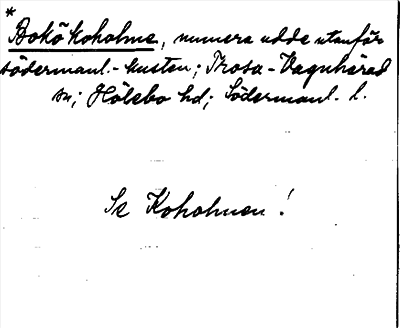 *
Bokö koholme, numera udde utanför
södermanl.-kusten; Trosa-Vagnhärad
sn; Hölebo hd; Södermanl. l.
Se Koholmen!